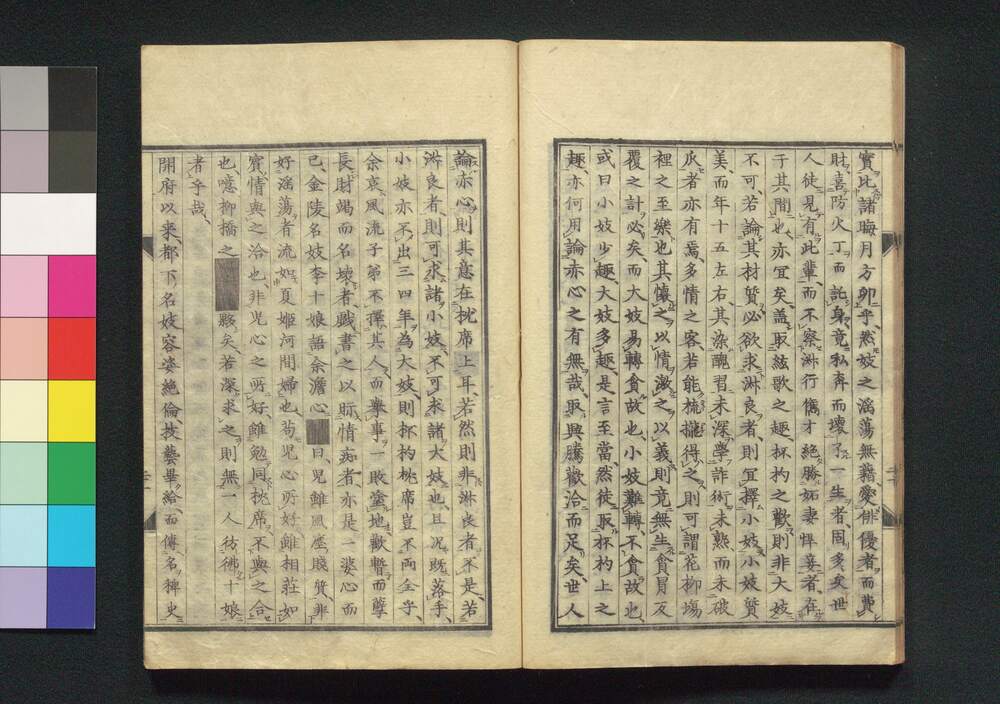 實比諸晦月方卵乎然妓之滛蕩無藉愛俳優者而費
財喜防火丁而託身竟私奔而壞了一生者固多矣世
人徒見有此輩而不察淋行儁才絶勝妬妻悍妾者在
于其間也亦宜矣盖取絃歌之趣杯杓之歡則非大妓
不可若論其材質必欲求淋良者則宜擇小妓小妓質
美而年十五左右其染醜習未深學詐術未熟而未破
瓜者亦有焉多情之客若能梳攏得之則可謂花柳塲
裡之至樂也其懐之以情激之以義則竟無生貪冐反
覆之計必矣而大妓易轉貪故也小妓難轉不貪故也
或曰小妓少趣大妓多趣是言至當然徒取杯杓上之
趣亦何用論亦心之有無哉取興騰歡洽而足矣世人
論亦心則其意在枕席上耳若然則非淋良者不是若
淋良者則可求諸小妓不可求諸大妓也且况既落手
小妓亦不出三四年為大妓則杯杓枕席豈不両全乎
余哀風流子弟不擇其人而擧事一敗塗地歡暫而孽
長財竭而名壊者戲書之以眎情痴者亦是一婆心而
已金陵名妓李十娘語余澹心曰兒雖風塵賤質非
好滛蕩者流如夏姫河間婦也茍児心所好雖相莊如
賓情與之洽也非児心之所好雖勉同枕席不與之合
也噫柳橋之夥矣若深求之則無一人彷彿十娘
者乎哉
開府以来都下名妓容姿絶倫技藝畢給而傳名稗史